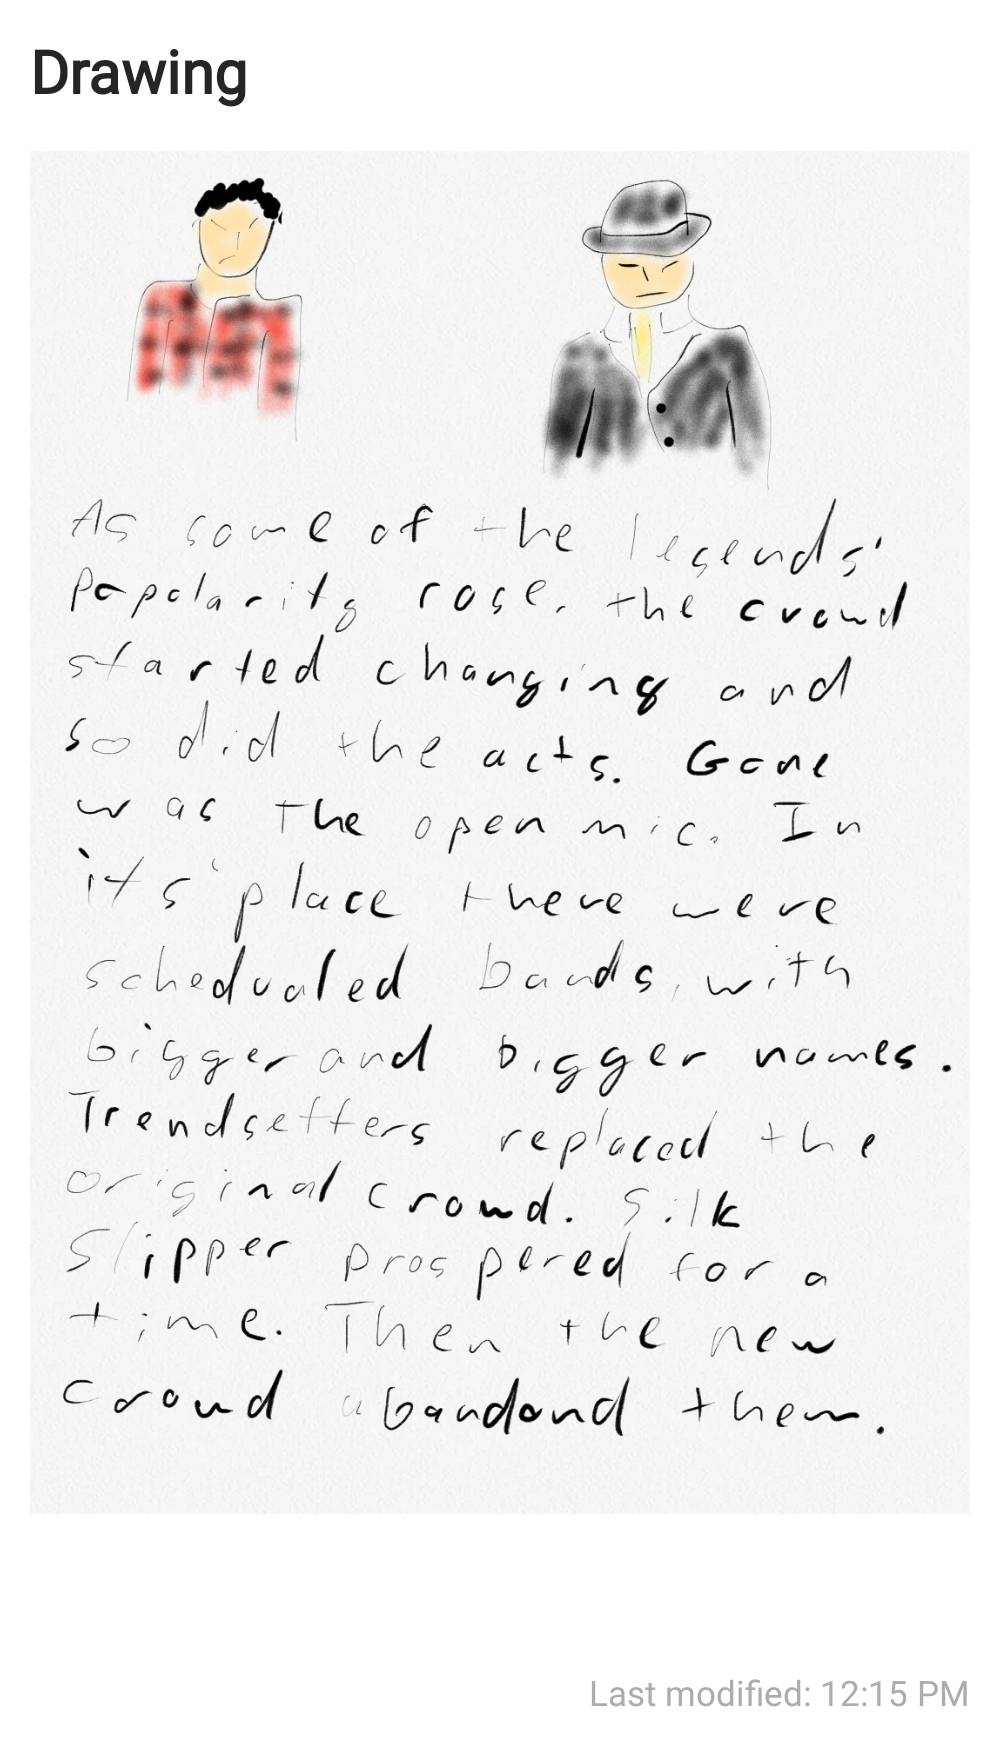 Drawing
As some of the legends'
popolarity rose, the crowd
started changing and
so did the acts. Gone
was the open mic. In
its' place there were
schedualed bands, with
bigger and bigger names.
Trendsetters replaced the
original crowd. Silk
Slipper prospered for a
time. Then the new
crowd abandond them.
Last modified: 12:15 PM